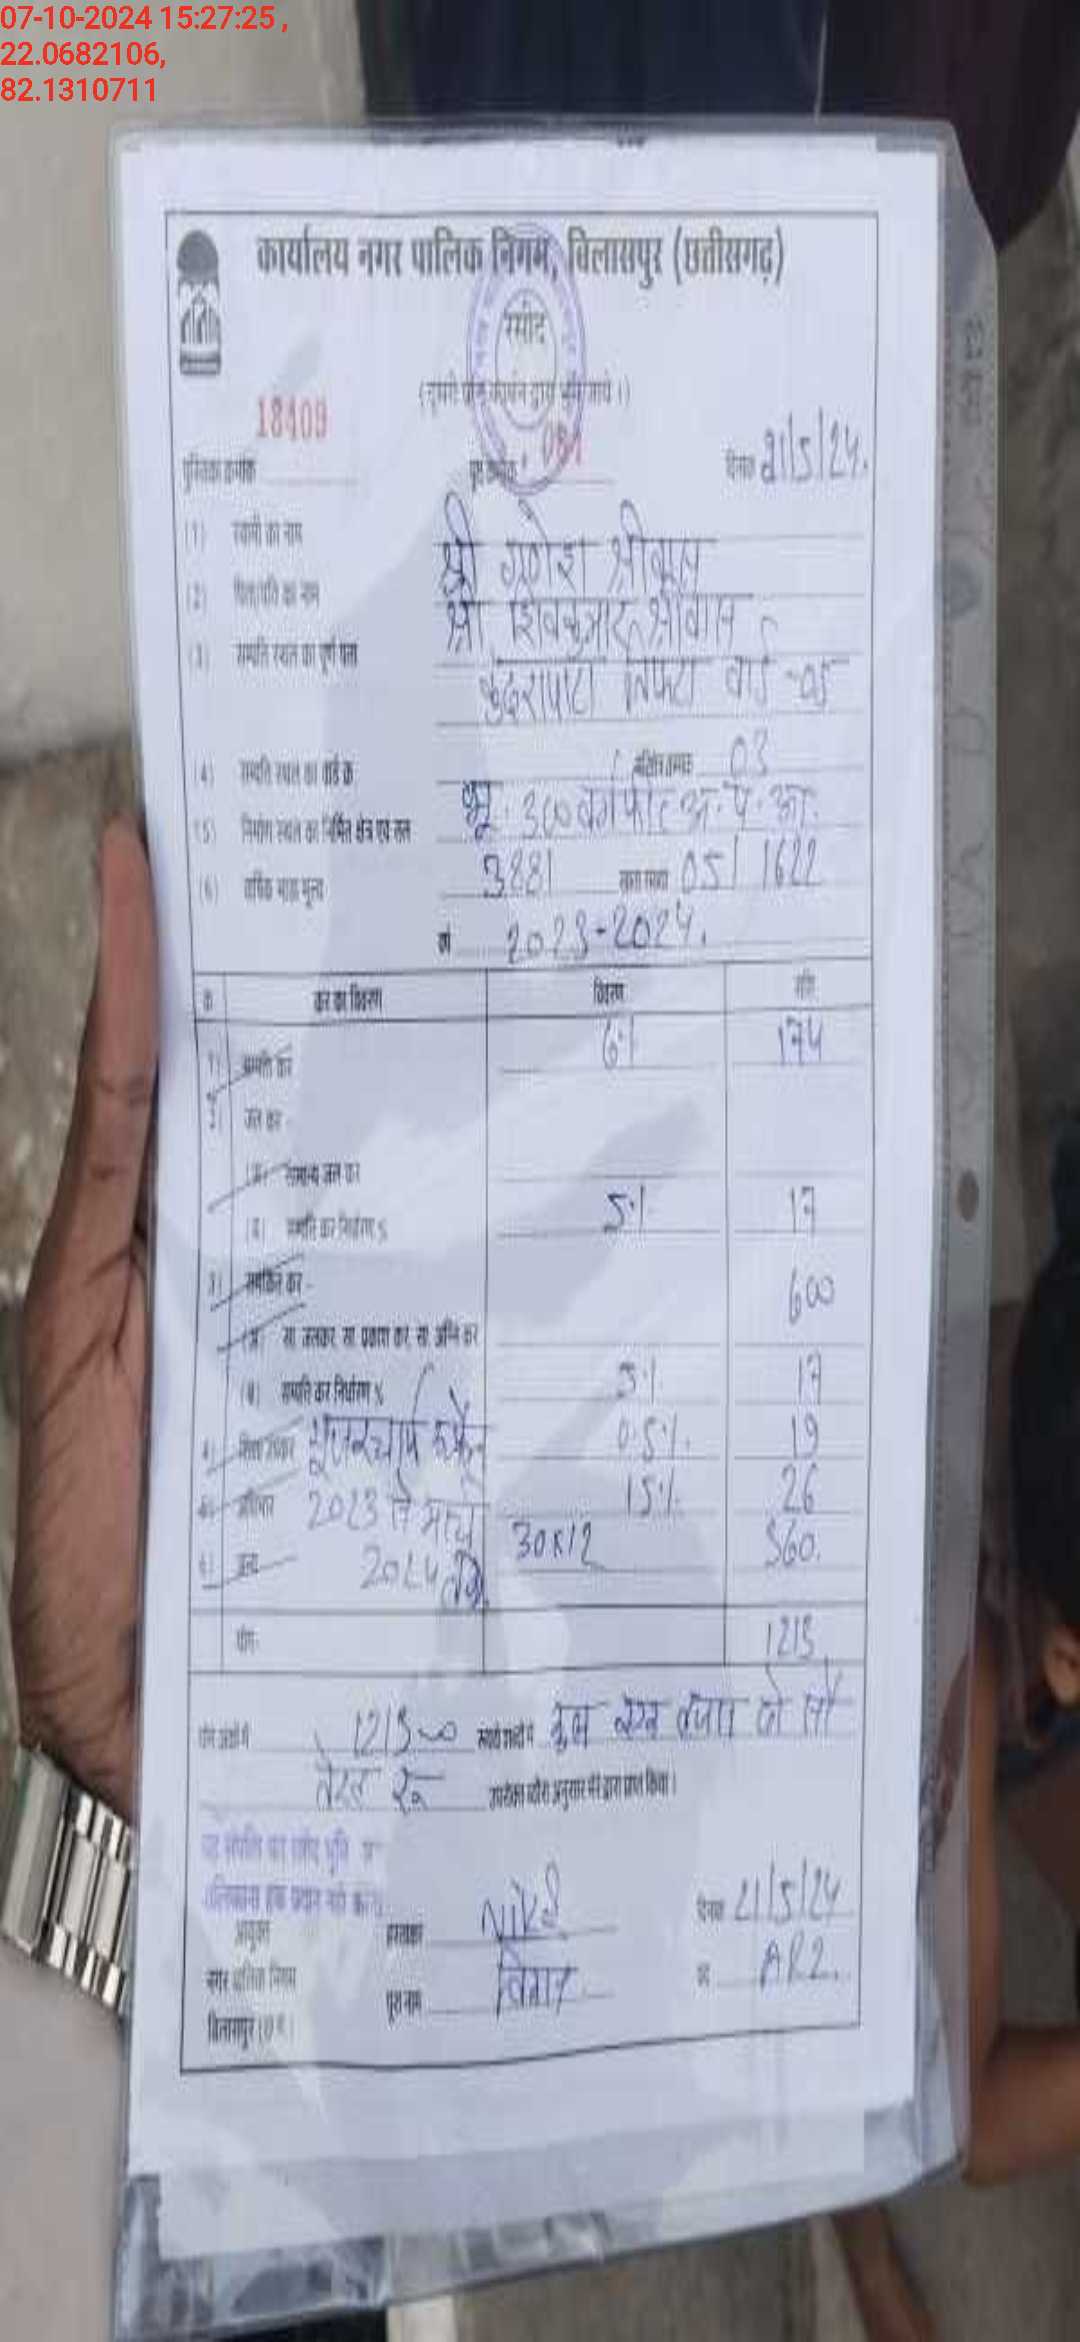 07-10-2024 15:27:25 ,
22.0682106,
82.1310711
कार्यालय नगर पालिक निगम, बिलासपुर (छत्तीसगढ़)
रसीद
18409
पुस्तिका क्रमांक
दिनांक 21/5/24.
(1) स्वामी का नाम श्री गणेश श्रीवास
(2) पिता/पति का नाम श्री शिवकुमार श्रीवास
(3) सम्पत्ति स्थल का पूर्ण पता
कुदरापारा तिफरा वार्ड -05
(4) सम्पत्ति स्थल का वार्ड क्र 03
(5) निर्माण स्थल का निर्मित क्षेत्र एवं तल भू. 300 वर्गफीट
(6) वार्षिक भाड़ा मूल्य 3881 05/1622
वर्ष 2023-2024.
क्र कर का विवरण विवरण राशि
1) सम्पत्ति कर 6% 174
2) जल कर
(अ) सामान्य जल कर
(ब) सम्पत्ति कर निर्धारण % 5% 17
3) समेकित कर - 600
(अ) सा. जलकर, सा. प्रकाश कर, सा. अग्नि कर
(ब) सम्पत्ति कर निर्धारण % 5% 17
4) शिक्षा उपकर यूजरचार्ज 0.5% 19
5) अधिभार 2023 से मार्च 15% 26
6) अन्य 2024 तक 30x12 360.
योग- 1213
योग अंकों में 1213=00 रुपये शब्दों में कुल रकम बारा सौ
तेरह रू उपरोक्त ब्यौरा अनुसार मेरे द्वारा प्राप्त किया।
आयुक्त हस्ताक्षर दिनांक 21/5/24
नगर पालिक निगम पूरा नाम पद ARI.
बिलासपुर (छ.ग.)